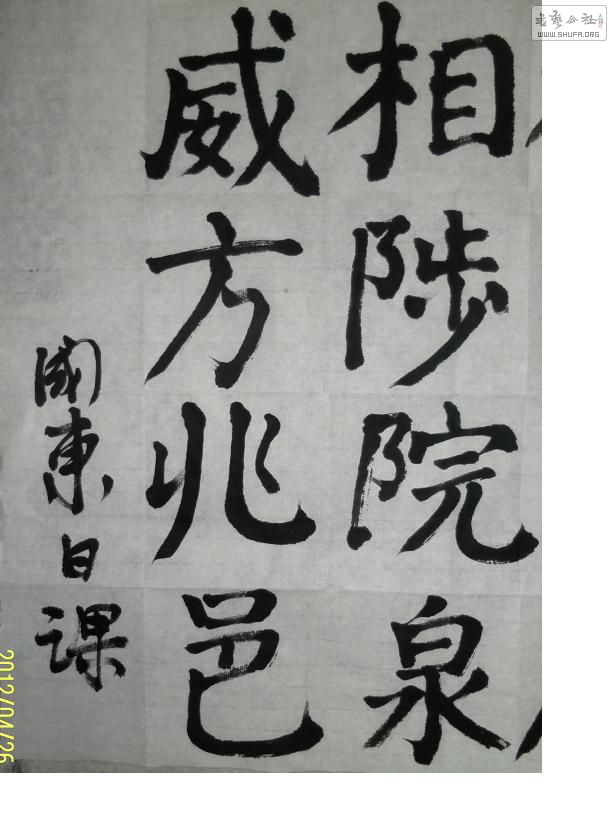 相陟院泉
威方兆邑
國東日课
2012/04/26
书艺公社
WWW.SHUFA.ORG